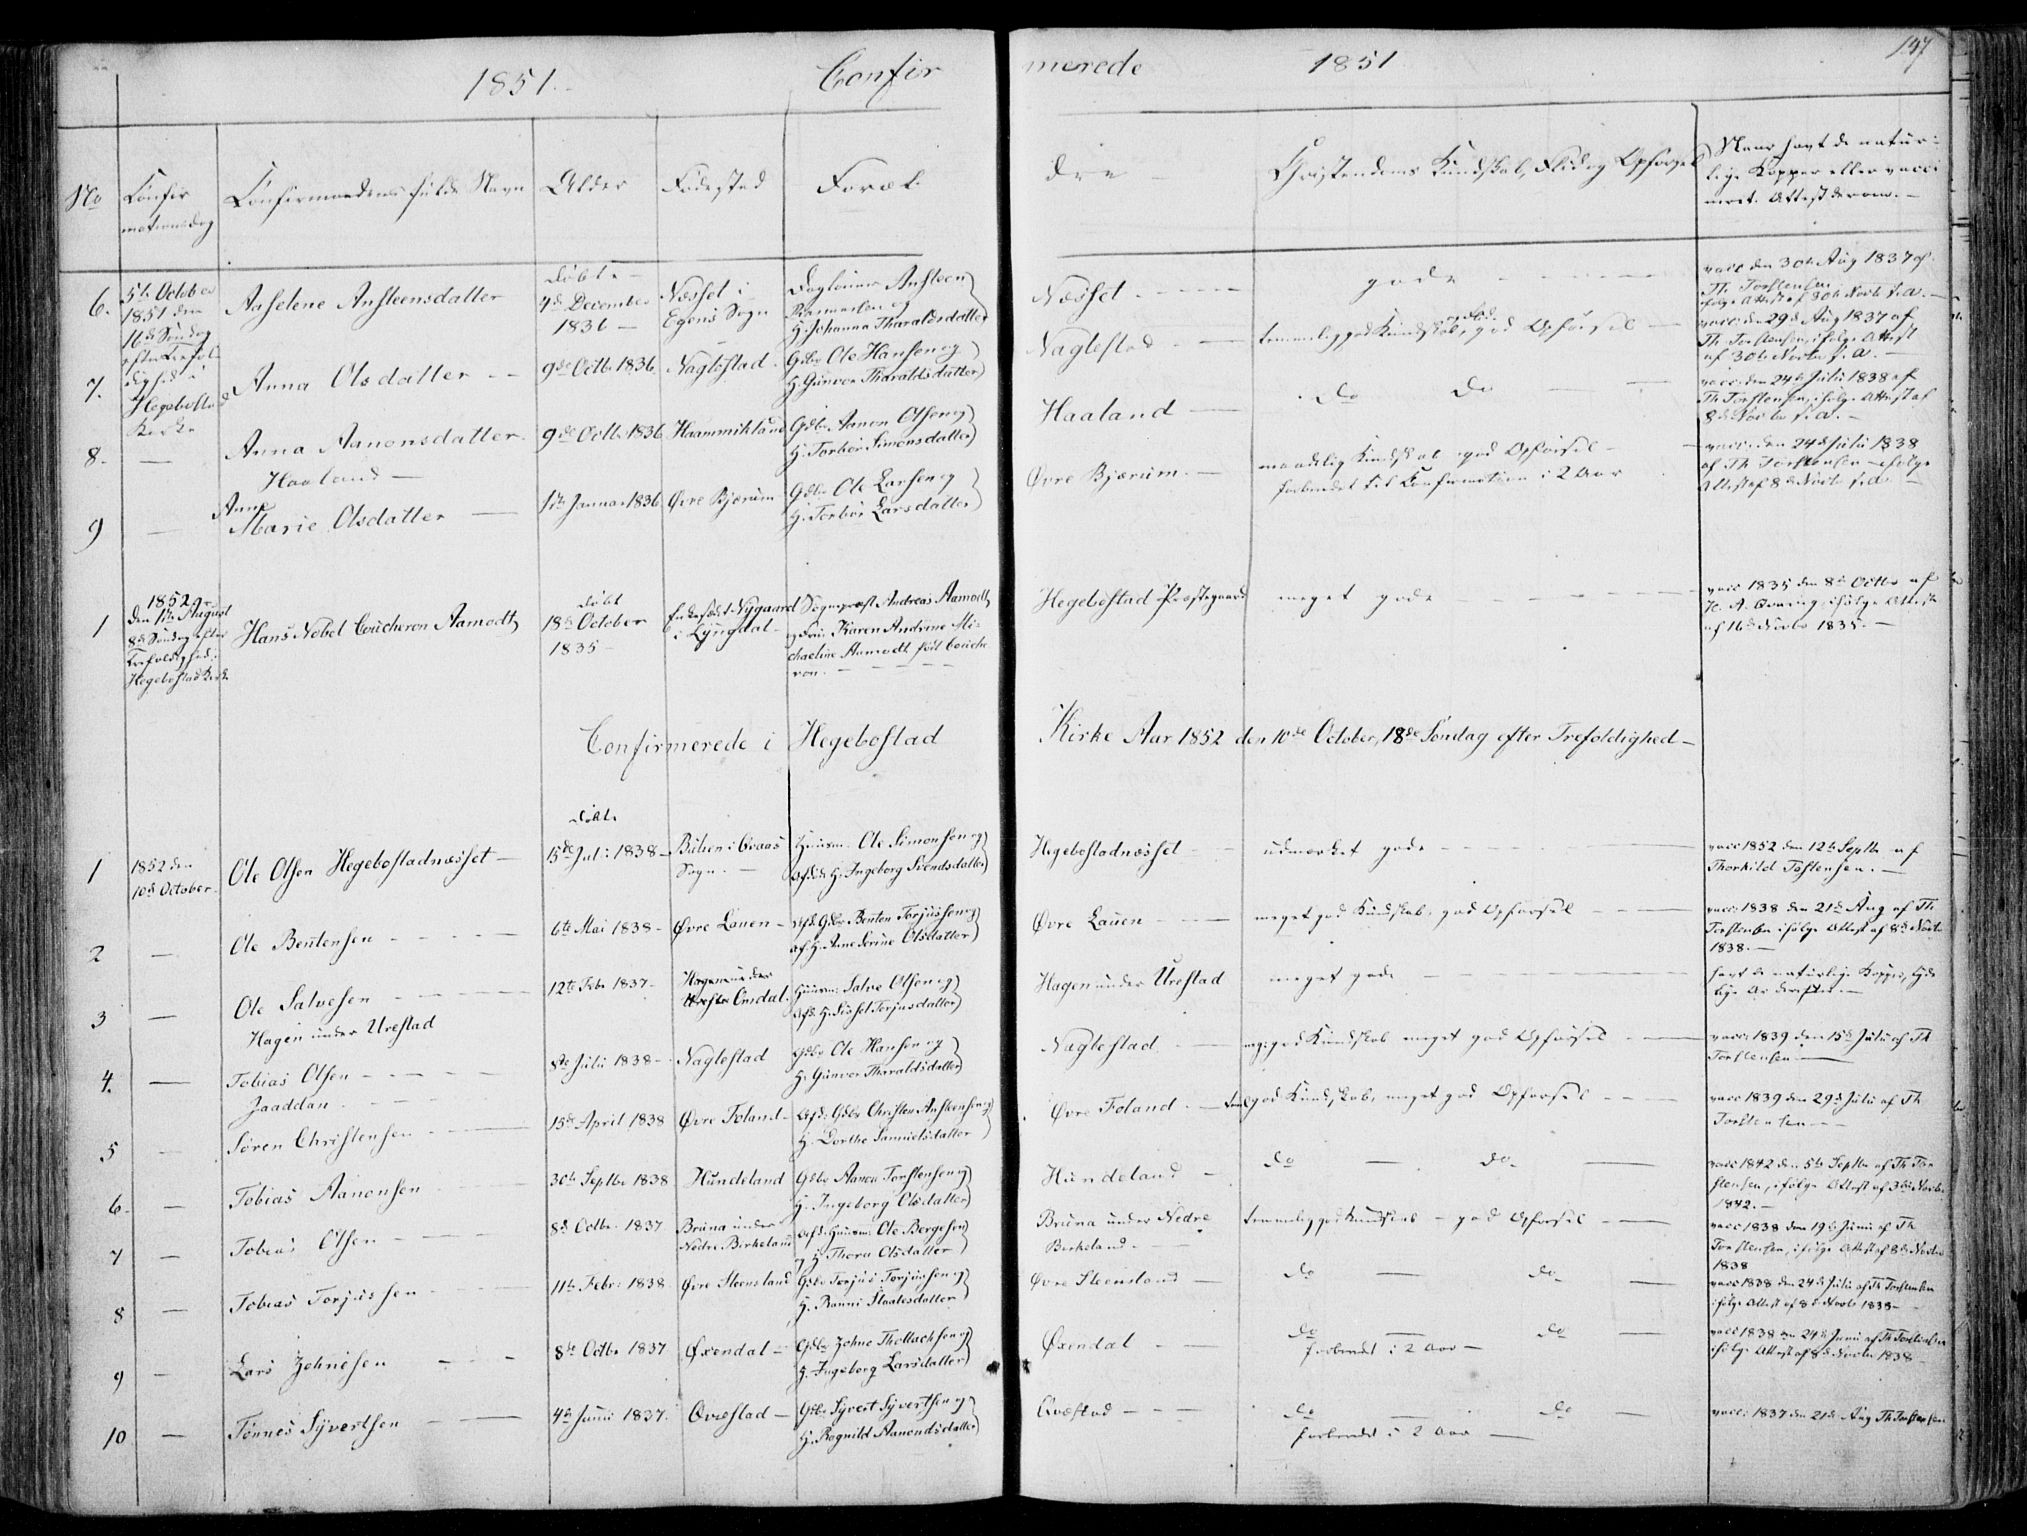 1851. Confirmerede 1851 147
No
Confirmationsdag
Confirmandens fulde Navn
Alder
Fødested
Forældre
Christendoms Kundskab, Flid og Opførsel
Naar havt de naturlige Kopper eller vaccineret. Attest derom.
6.
5te October
1851 den
16de Søndag
efter Trefol
dighed i
Hegebostad
Kirke
Aaselene Ansteensdatter
Døbt
4de December
1836
Næsset i
Egens Sogn
Dagleier Ansteen
og
H. Johanna Tharaldsdatter
Næsset
gode
vacc den 30te Aug 1837 af
Th. Torstensen
ifølge Attest af 30te Novbr s. a.
7.
Anna Olsdatter
9de Octbr 1836
Naglestad
Gdbr Ole Hansen og
H. Gunvor Tharaldsdatter
Naglestad
temmelig god Kundskab, god Opførsel
vacc: den 29de Aug 1837 af
Th. Torstensen, ifølge Attest
af 30te Novbr s. a.
8.
Anna Aanonsdatter
Haaland
9de Octbr 1836
Haammikland
Gdbr Aanon Olsen og
H. Torbor Simonsdatter
Haaland
do do
vacc: den 24de Julii 1838 af
Th Torstensen, ifølge Attest af
8de Novbr s. a.
9
Anne
Marie Olsdatter
1te Januar 1836
Øvre Bjærum
Gdbr Ole Larsen og
H. Torbor Larsdatter
Øvre Bjærum
maadelig Kundskab god Opførsel
forberedet til Confirmation i 2 Aar
vacc: den 24de Julii 1838
af Th Torstensen ifølge
Attest af 8de Novbr s. a.
1
1852
den 1te August
8de Søndag efter
Trefoldighed i
Hegebostad Kirke
Hans Nobel Coucheron Aamodt
Døbt
18de October
1835
Enkesædet Nygaard
i Lyngdal
Sognepræst Andreas Aamodt
og Frue Karen Andrine Mi-
chaeline Aamodt født Couche
ron.
Hegebostad Præstegaard
meget gode
vacc 1835 den 8de Octbr af
ifølge Attest
af 16de Novbr 1835.
Confirmerede i Hegebostad Kirke Aar 1852 den 10de October, 18de Søndag efter Trefoldighed
1
1852 den
10de October
Ole Olsen Hegebostadnæsset
Døbt
15de Juli 1838
i Qvaas
Sogn.
Huusm: Ole Simonsen og
afdøde H. Ingeborg Svendsdatter
Hegebostadnæsset
udmærket gode
vacc 1852 den 12te Septbr af
Thorkild Tostensen.
2
Ole Bentensen
6te Mai 1838
Øvre Lauen
Afd. Gdbr Benten Torjussen og
af. H. Anne Serine Olsdatter
Øvre Lauen
meget god Kundskab, god Opførsel
vacc: 1838 den 21de Aug af Th
Torstensen ifølge Attest af 8de Novbr
1838.
3
Ole Salvesen
Hagen under Urestad
12te Febr 1837
Hagen under
Omdal.
Huusm: Salve Olsen og
afd. H. Sissel Torjusdatter
Hagen under Urestad
meget gode
havt de naturlige Kopper, tyde
lige Ar derefter.
4.
Tobias Olsen
Jaaddan
8de Julii 1838
Naglestad
Gdbr Ole Hansen og
H. Gunvor Tharaldsdatter
Naglestad
meg: god Kundskab meget god Opførsel
vacc: 1839 den 15de Julii af Th
Torstensen
5
Søren Christensen
15de April 1838
Øvre Foland
Afd: Gdbr Christen Ansteensen og
H. Dorthe Samuelsdatter
Øvre Foland
teml god Kundskab, meget god Opførsel
vacc 1839 den 29de Julii af Th
Torstensen
6.
Tobias Aanonsen
30te Septbr 1838
Hundeland
Gdbr Aanon Torstensen og
H. Ingeborg Olsdatter
Hundeland
do do
vacc 1842 den 5te Septbr af Th Tor
stensen, ifølge Attest af 3die Novbr
1842.
7
Tobias Olsen
8de Octbr. 1837
Bruna under
Nedre Birkeland
Afd. Huusm: Ole Bergesen
og H Thora Olsdatter
Bruna under Nedre
Birkeland.
temmelig god Kundskab god Opførsel
vacc 1838 den 19de Junii af Th
Torstensen, ifølge Attest af 8de Novbr
1838
8
Tobias Torjussen
11te Febr: 1838
Øvre Steensland
Gdbr Torjus Torjussen og
H. Ranni Staalesdatter
Øvre Steensland
do do
vacc 1838 den 24de Julii af Th Torstensen
ifølge Attest af 8de Novbr 1838
9
Lars Johnesen
8de Octbr 1837
Øxendal
Gdbr Johne Thollachsen og
H. Ingeborg Larsdatter
Øxendal
do do
forberedet i 2 Aar
vacc 1838 den 24de Junii af Th Torstensen
ifølge Attest af 8de Novbr 1838
10
Tønnes Syvertsen
4de Junii 1837.
Qvæstad
Gdbr Syvert Syvertsen og
H. Ragnild Aanondsdatter
Qvæstad
do do
forberedet i 2 Aar
vacc: 1837 den 21de Aug Th Torstensen